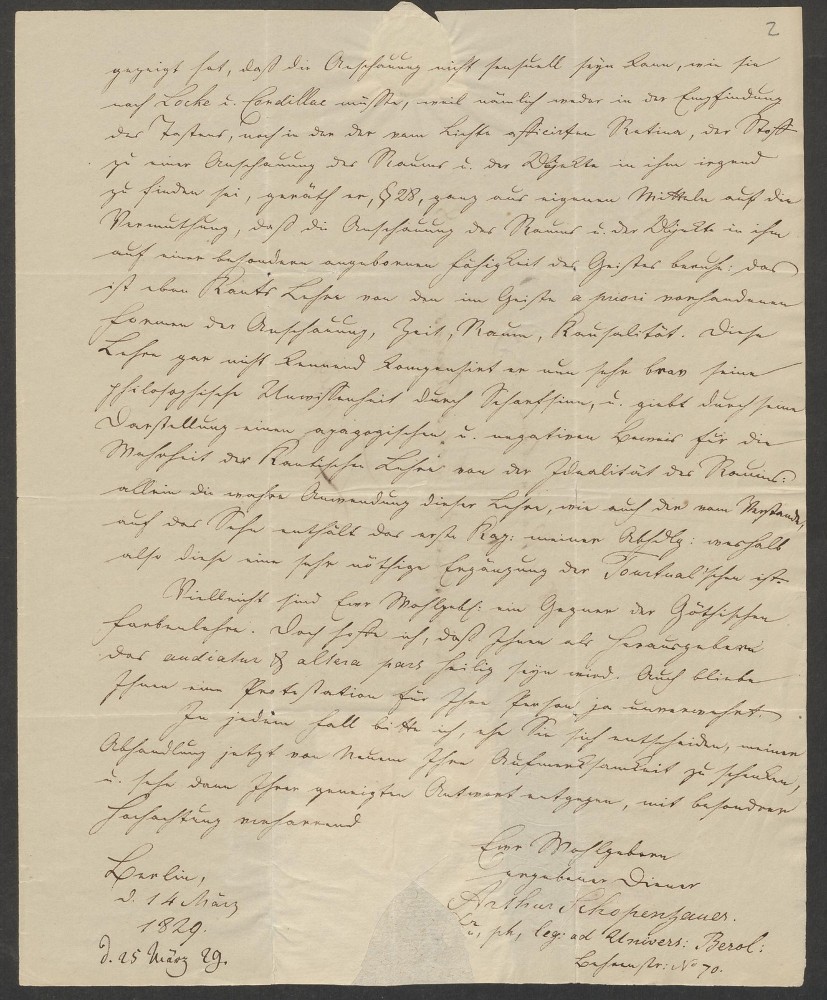 2
gezeigt hat, daß die Anschauung nicht sensuell seyn kann, wie sie
nach Locke u. Condillac müßte, weil nämlich weder in der Empfindung
des Tastens, noch in der der vom Lichte afficirten Retina, der Stoff
zu einer Anschauung des Raums u. der Objekte in ihm irgend
zu finden sei, geräth er, § 28, ganz aus eigenen Mitteln auf die
Vermuthung, daß die Anschauung des Raums u. der Objekte in ihm
auf einer besondern angebornen Fähigkeit des Geistes beruhe: das
ist eben Kants Lehre von den im Geiste a priori vorhandenen
Formen der Anschauung, Zeit, Raum, Kausalität. Diese
Lehre gar nicht kennend kompensirt er nun sehr brav seine
philosophische Unwissenheit durch Scharfsinn, u. giebt durch seine
Darstellung einen apagogischen u. negativen Beweis für die
Wahrheit der Kantischen Lehre von der Idealität des Raums:
allein die wahre Anwendung dieser Lehre, wie auch der vom Verstande,
auf das Sehn enthält das erste Kap: meiner Abhdlg: weshalb
also diese eine sehr nöthige Ergänzung der Tourtual'schen ist.
Vielleicht sind Ewr Wohlgeb: ein Gegner der Göthischen
Farbenlehre. Doch hoffe ich, daß Ihnen als Herausgeber
das audiatur & altera pars heilig seyn wird. Auch bliebe
Ihnen eine Protestation für Ihre Person ja unverwehrt.
In jedem Fall bitte ich, ehe Sie sich entscheiden, meiner
Abhandlung jetzt von Neuem Ihre Aufmerksamkeit zu schenken,
u. sehe dann Ihrer geneigten Antwort entgegen, mit besondrer
Hochachtung verharrend
Ewr Wohlgebern
ergebener Diener
Arthur Schopenhauer.
Dr, ph, leg: ad Univers: Berol:
Behrenstr: No 70.
Berlin,
d. 14 März
1829.
d. 25 März 29.